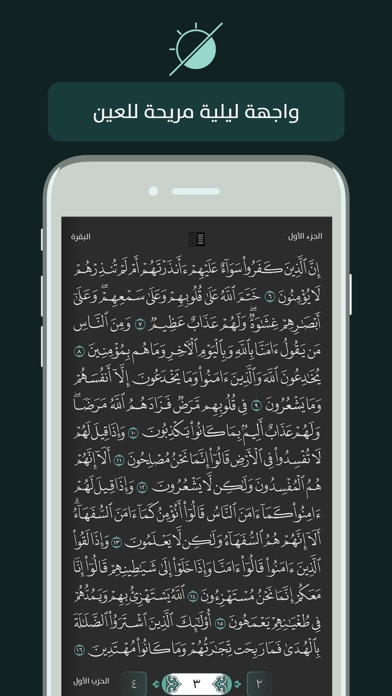 واجهة ليلية مريحة للعين
الجزء الأول
البقرة
إِنَّ ٱلَّذِينَ كَفَرُواْ سَوَآءٌ عَلَيْهِمْ ءَأَنذَرْتَهُمْ أَمْ لَمْ تُنذِرْهُمْ
لَا يُؤْمِنُونَ ٦ خَتَمَ ٱللَّهُ عَلَىٰ قُلُوبِهِمْ وَعَلَىٰ سَمْعِهِمْۖ وَعَلَىٰٓ
أَبْصَٰرِهِمْ غِشَٰوَةٌۖ وَلَهُمْ عَذَابٌ عَظِيمٌ ٧ وَمِنَ ٱلنَّاسِ
مَن يَقُولُ ءَامَنَّا بِٱللَّهِ وَبِٱلْيَوْمِ ٱلْءَاخِرِ وَمَا هُم بِمُؤْمِنِينَ ٨
يُخَٰدِعُونَ ٱللَّهَ وَٱلَّذِينَ ءَامَنُواْ وَمَا يَخْدَعُونَ إِلَّآ أَنفُسَهُمْ
وَمَا يَشْعُرُونَ ٩ فِي قُلُوبِهِم مَّرَضٌ فَزَادَهُمُ ٱللَّهُ مَرَضًاۖ
وَلَهُمْ عَذَابٌ أَلِيمٌۢ بِمَا كَانُواْ يَكْذِبُونَ ١٠ وَإِذَا قِيلَ لَهُمْ
لَا تُفْسِدُواْ فِي ٱلْأَرْضِ قَالُوٓاْ إِنَّمَا نَحْنُ مُصْلِحُونَ ١١ أَلَآ إِنَّهُمْ
هُمُ ٱلْمُفْسِدُونَ وَلَٰكِن لَّا يَشْعُرُونَ ١٢ وَإِذَا قِيلَ لَهُمْ
ءَامِنُواْ كَمَآ ءَامَنَ ٱلنَّاسُ قَالُوٓاْ أَنُؤْمِنُ كَمَآ ءَامَنَ ٱلسُّفَهَآءُۗ
أَلَآ إِنَّهُمْ هُمُ ٱلسُّفَهَآءُ وَلَٰكِن لَّا يَعْلَمُونَ ١٣ وَإِذَا لَقُواْ
ٱلَّذِينَ ءَامَنُواْ قَالُوٓاْ ءَامَنَّا وَإِذَا خَلَوْاْ إِلَىٰ شَيَٰطِينِهِمْ قَالُوٓاْ إِنَّا
مَعَكُمْ إِنَّمَا نَحْنُ مُسْتَهْزِءُونَ ١٤ ٱللَّهُ يَسْتَهْزِئُ بِهِمْ وَيَمُدُّهُمْ
فِي طُغْيَٰنِهِمْ يَعْمَهُونَ ١٥ أُوْلَٰٓئِكَ ٱلَّذِينَ ٱشْتَرَوُاْ ٱلضَّلَٰلَةَ
بِٱلْهُدَىٰ فَمَا رَبِحَت تِّجَٰرَتُهُمْ وَمَا كَانُواْ مُهْتَدِينَ ١٦
٢
٣
٤
الحزب الأول